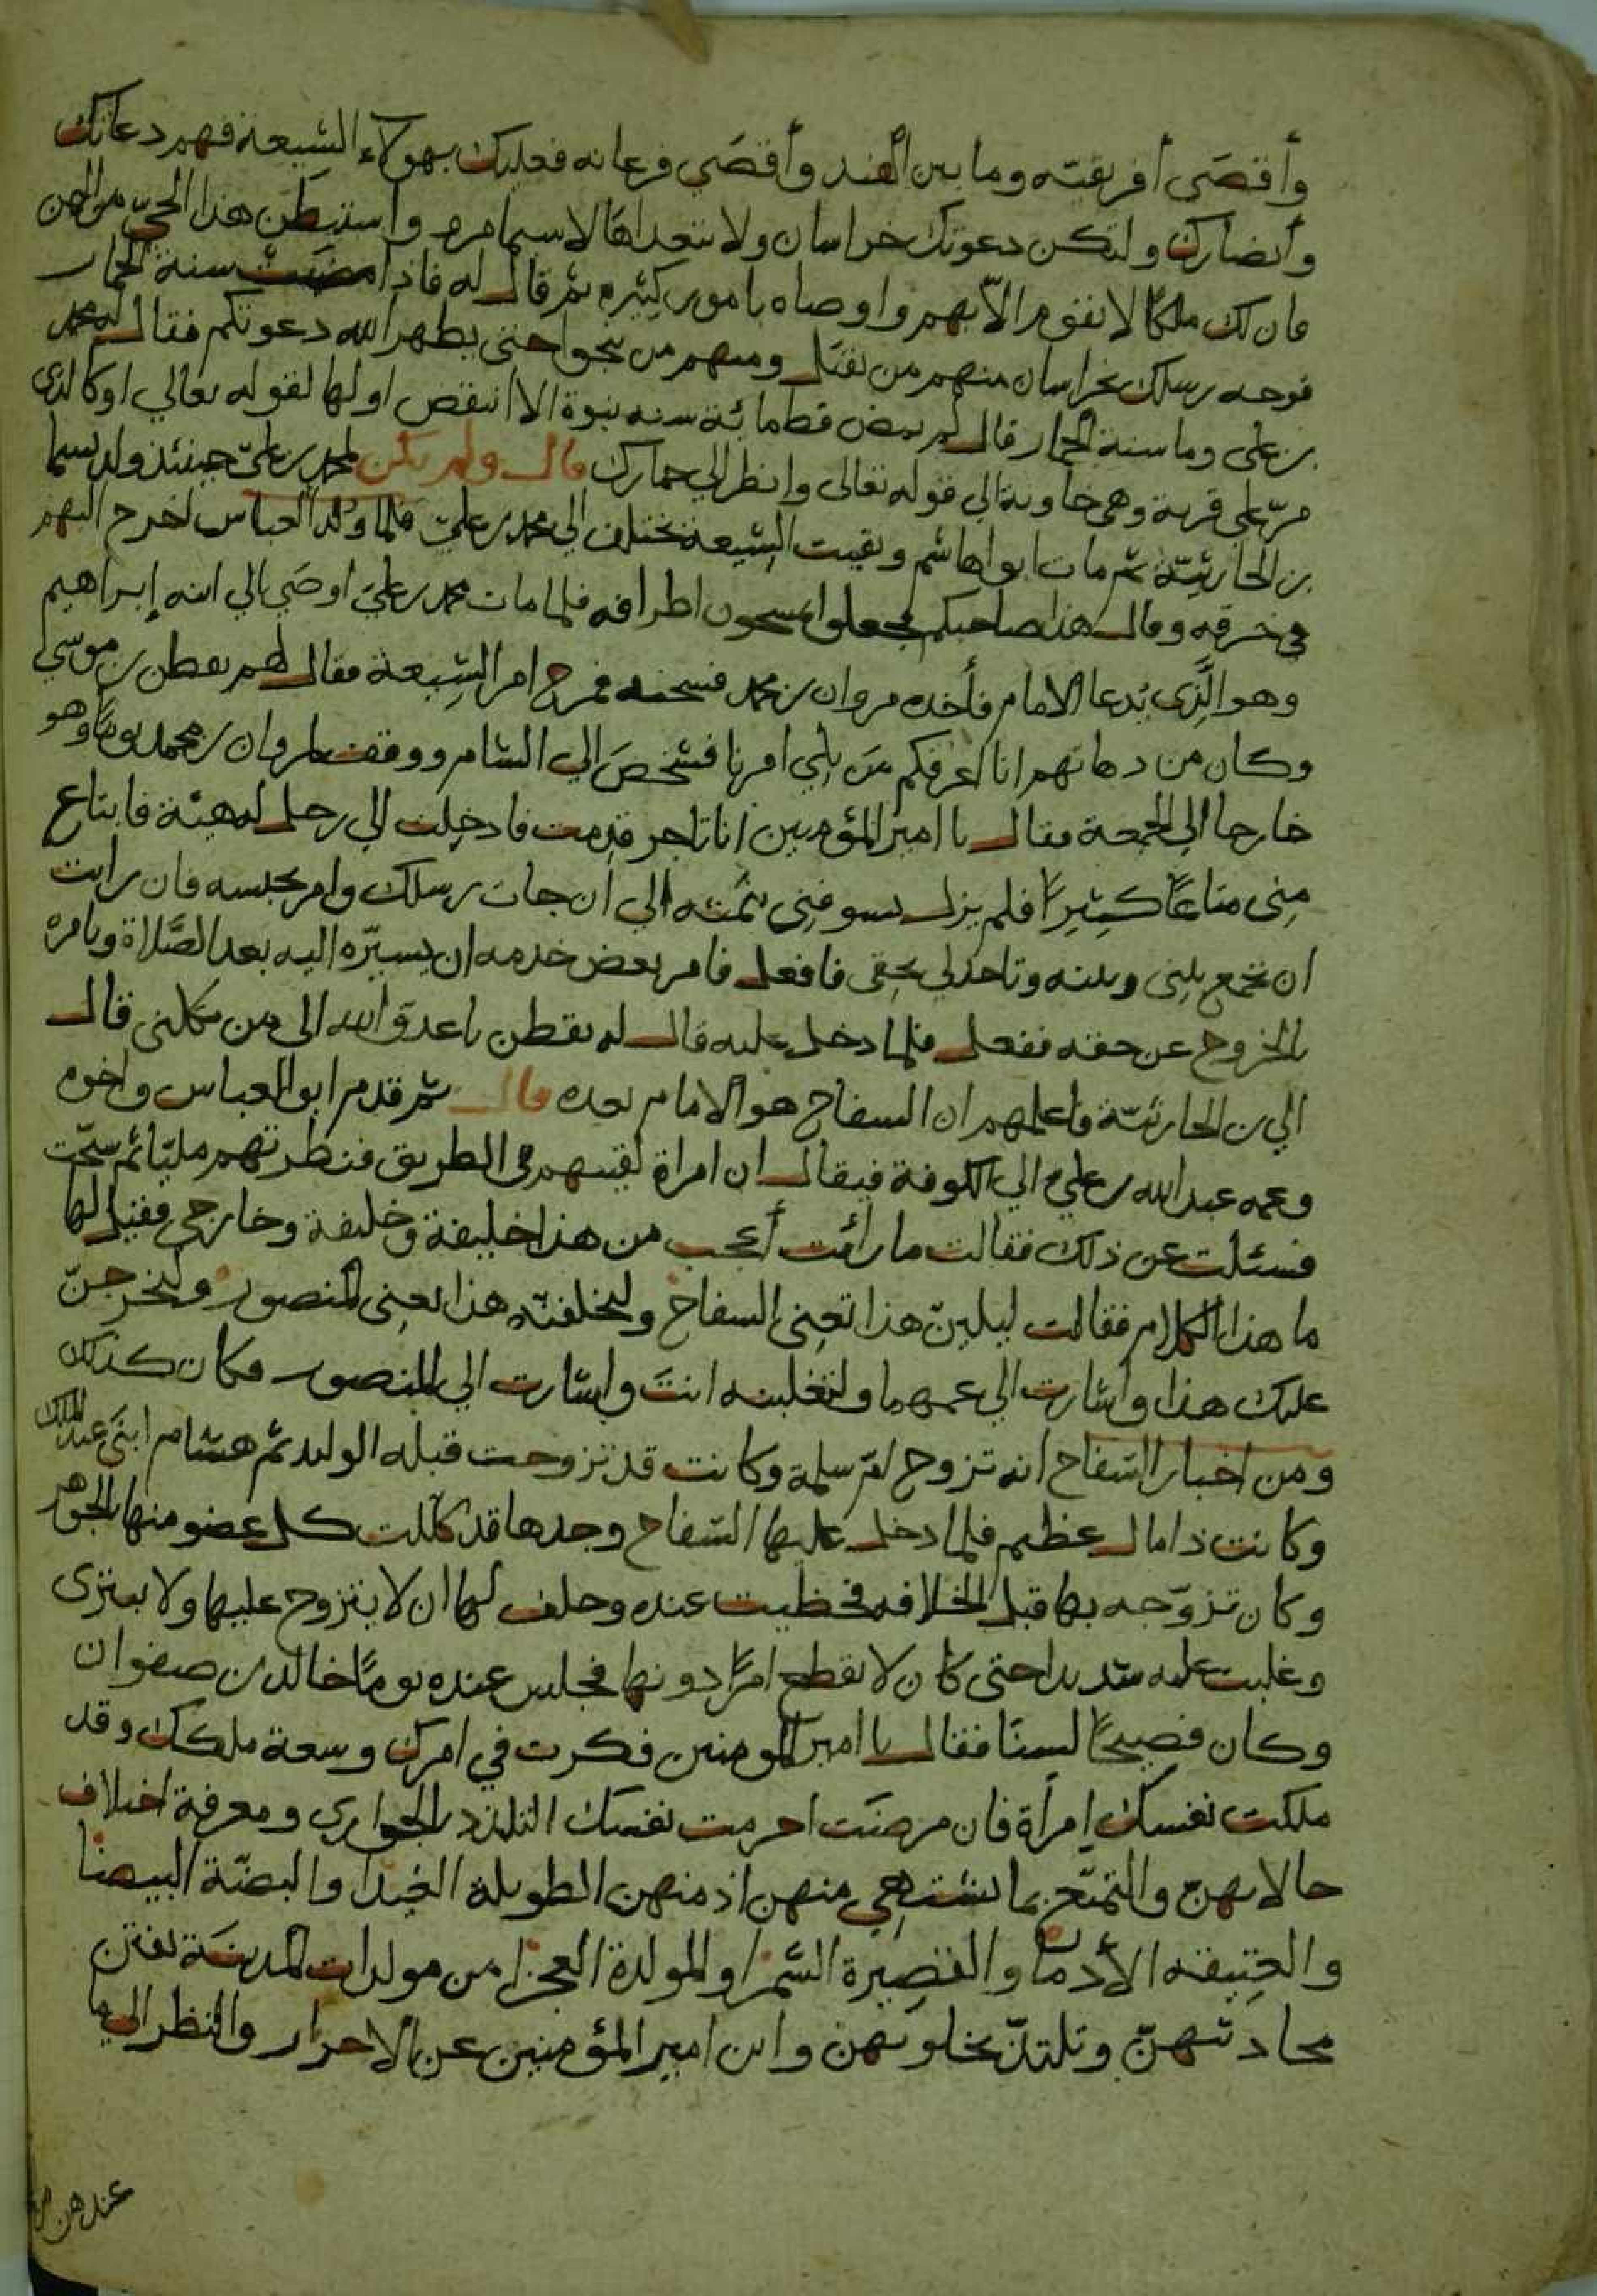 وأقصَى أفريقيّه وما بين الهند وأقصَى فرغانه فعليك بهولاء الشيعة فهم دعاتك
وأنصارك ولتكن دعوتك خراسان ولا تتعداها لاسيما مرو واستبطن هذا الحيّ من اليمن
فان لك ملكًا لا يقوم الّا بهم واوصاه بامور كثيره ثم قال له فاذا مضيت سنة الحمار
فوجه رسلك بخراسان منهم من يقتل ومنهم من ينجوا حتى يظهر الله دعوتكم فقال له محمد
بن على وما سنة الحمار قال لم يمض قط مائة سنه نبوة الا انتقض اولها لقوله تعالي اوكالذى
مرّ على قرية وهى خاوية الي قوله تعالى وانظر الي حمارك قال ولم يكن لمحمد بن عليّ حينئذ ولد يسما
بن الحارثيّة ثم مات ابو اهاشم وبقيت الشيعة تختلف الي محمد بن عليّ فلما ولد العباس اخرج اليهم
في خرقه وقال هذا صاحبكم فجعلوا يمسحون اطرافه فلما مات محمد بن علىّ اوصَي الي ابنه إبراهيم
وهو الَّذي يُدعا الامام فأخذه مروان بن محمد فسجنه فمرج امر الشيعة فقال لهم يقطن بن موسي
وكان من دهاتهم انا اعرفكم مَن يلي امرنا فشخصَ الي الشام ووقف لمروان بن محمد يومًا وهو
خارجا الي الجمعة فقال يا امير المؤمنين انا تاجر قدمت فادخلت الي رجل له هيئة فابتاع
مِنى متاعًا كثيرًا فلم يزل يسوفنِى ثمَنه الي ان جات رسلك وامر بحبسه فان رايت
ان تجمع بينِى وبينه وتاخذ لي بحقى فافعل فامر بعض خدمه ان يسيّره اليه بعد الصَّلاة ويامره
بالخروج عن حقه ففعل فلما دخل عليه قال له يقطن يا عدوّ الله الى من تكلنى قال
الي بن الحارثيّة فاعلمهم ان السفاح هو الامام بعده قال ثم قدم ابو العباس واخوه
وعمه عبد الله بن عليّ الي الكوفة فيقال ان امراة لقيتهم في الطريق فنظرتهم مليّا ثم سبّحت
فسئلت عن ذلك فقالت ما رائت أعجب من هذا خليفة وخليفة وخارجي فقيل لها
ما هذا الكلام فقالت ليلينّ هذا تعِنى السفاح وليخلفنّه هذا تعنِى المنصور وليخرجنّ
عليك هذا واشارت الي عمهما ولتغلبنه انتَ واشارت الي المنصور فكان كذلك
ومن اخبار السّفاح انه تزوج امّ سلمة وكانت قد تزوجت قبله الوليد ثم هشام ابنَي عبد الملك
وكانت ذا مال عظيم فلما دخل عليها السّفاح وجدها قد كللت كل عضو منها بالجوهر
وكان تزوّجه بها قبل الخلافه فحظيت عنده وحلف لها ان لا يتزوج عليها ولا يعتزى
وغلبت عليه شديدا حتى كان لا يقطع امرًا دونها فجلس عنده يومًا خالد بن صفوان
وكان فصيحًا لسنًا فقال يا امير المومنين فكرت في امرك وسعة ملكك وقد
ملكت نفسك إمرأة فان مرضَت احرمت نفسك التلذذ بالجواري ومعرفة اختلاف
حالاتهن والتمتّع بما تشتهي منهن اذ منهن الطويلة الغيدا والبضّة البيضا
والعتيقه الأدما والقصِيرة السّمرا والمولدة العجزا من مولدات المدينَة تفتن
بمحادثتهنّ وتلتذّ بخلوتهن واين امير المؤمنين عن الاحرار والنظر الي ما
عندهن